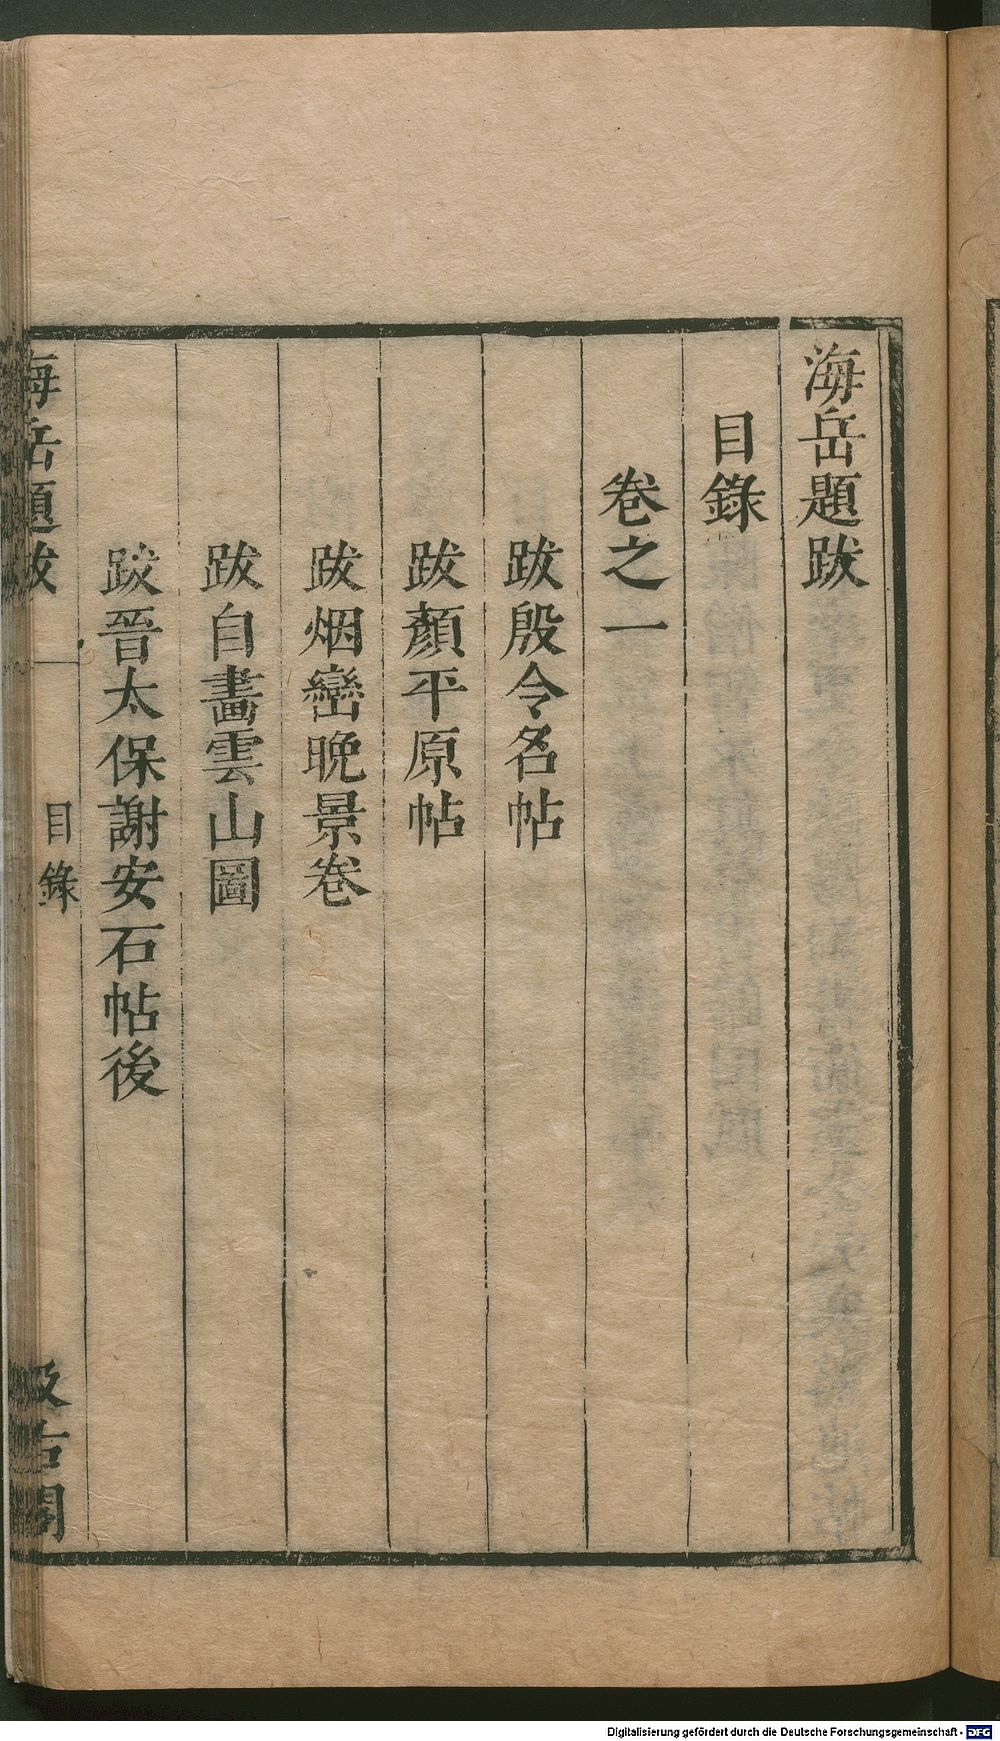 海岳題跋
目錄
卷之一
跋殷令名帖
跋顏平原帖
跋烟巒晚景卷
跋自畫雲山圖
跋晉太保謝安石帖後
海岳題跋
目錄
汲古閣
Digitalisierung gefördert durch die Deutsche Forschungsgemeinschaft - DFG